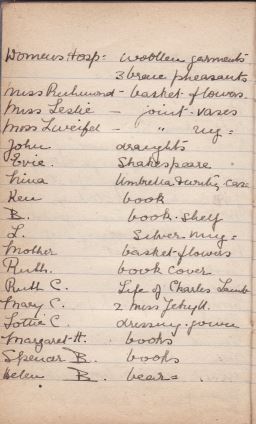 Womens Hosp: woollen garments
3 brace pheasants
Miss Richmond - basket flowers.
Miss Leslie - joint-vases
Miss - " rug =
John draughts
Evie. Shakespeare
Nina Umbrella & writing case
Ken book
B. book-shelf
L. Silver mug =
Mother basket-flowers
Ruth. book cover
Ruth C. Life of Charles Lamb
Mary C. 2 Miss Jekyll.
Lottie C. dressing-gown
Margaret-H. books
Spencer B. books
Helen B. bears